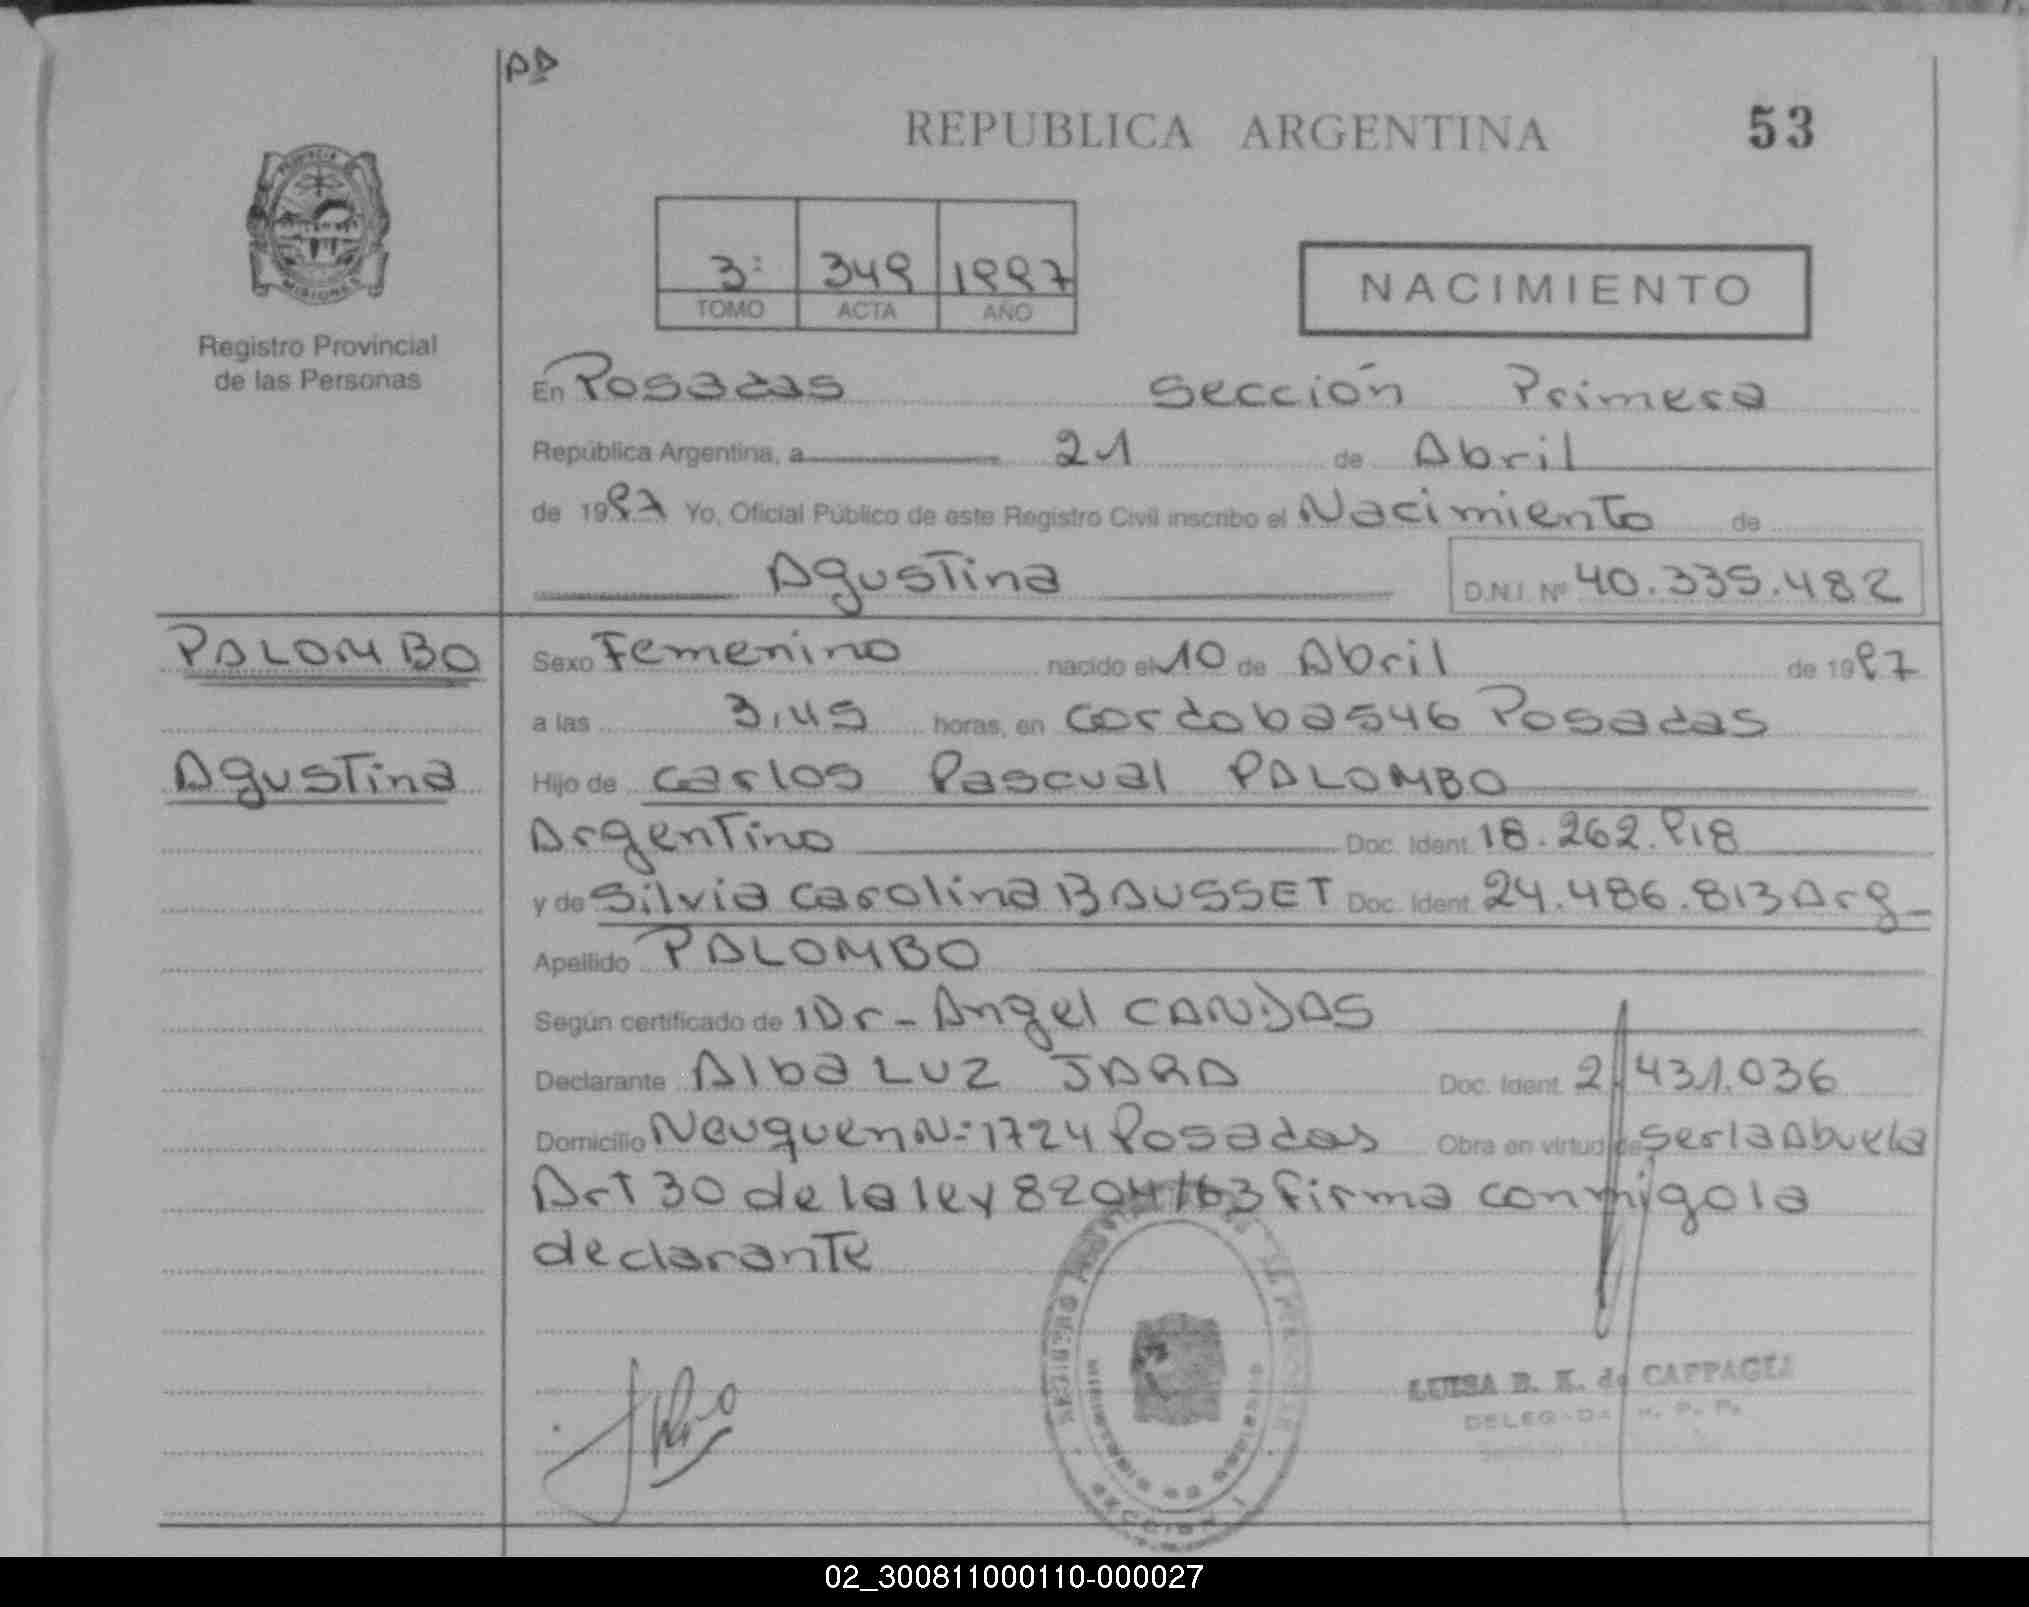 AD
REPUBLICA ARGENTINA 53
3: 349 1997
TOMO ACTA AÑO
NACIMIENTO
MISIONES
Registro Provincial
de las Personas
En Posadas Sección Primera
República Argentina, a 21 de Abril
de 1997 Yo, Oficial Público de este Registro Civil inscribo el Nacimiento de
Agustina D.N.I. Nº 40.335.482
PALOMBO
Sexo Femenino nacido el 10 de Abril de 1997
a las 3,45 horas, en Cordoba 546 Posadas
Agustina
Hijo de Carlos Pascual PALOMBO
Argentino Doc. Ident. 18.262.918
y de Silvia Carolina BAUSSET Doc. Ident. 24.486.813 Arg
Apellido PALOMBO
Según certificado de Dr- Angel CANDAS
Declarante Alba LUZ JARA Doc. Ident. 2 431.036
Domicilio Neuquen N:1724 Posadas Obra en virtud de ser la Abuela
Art 30 de la ley 8204/63 firma conmigo la
declarante
LUISA B. K. de CAPPAGLI
DELEGADA R. P. P.
SECCION 1
02_300811000110-000027